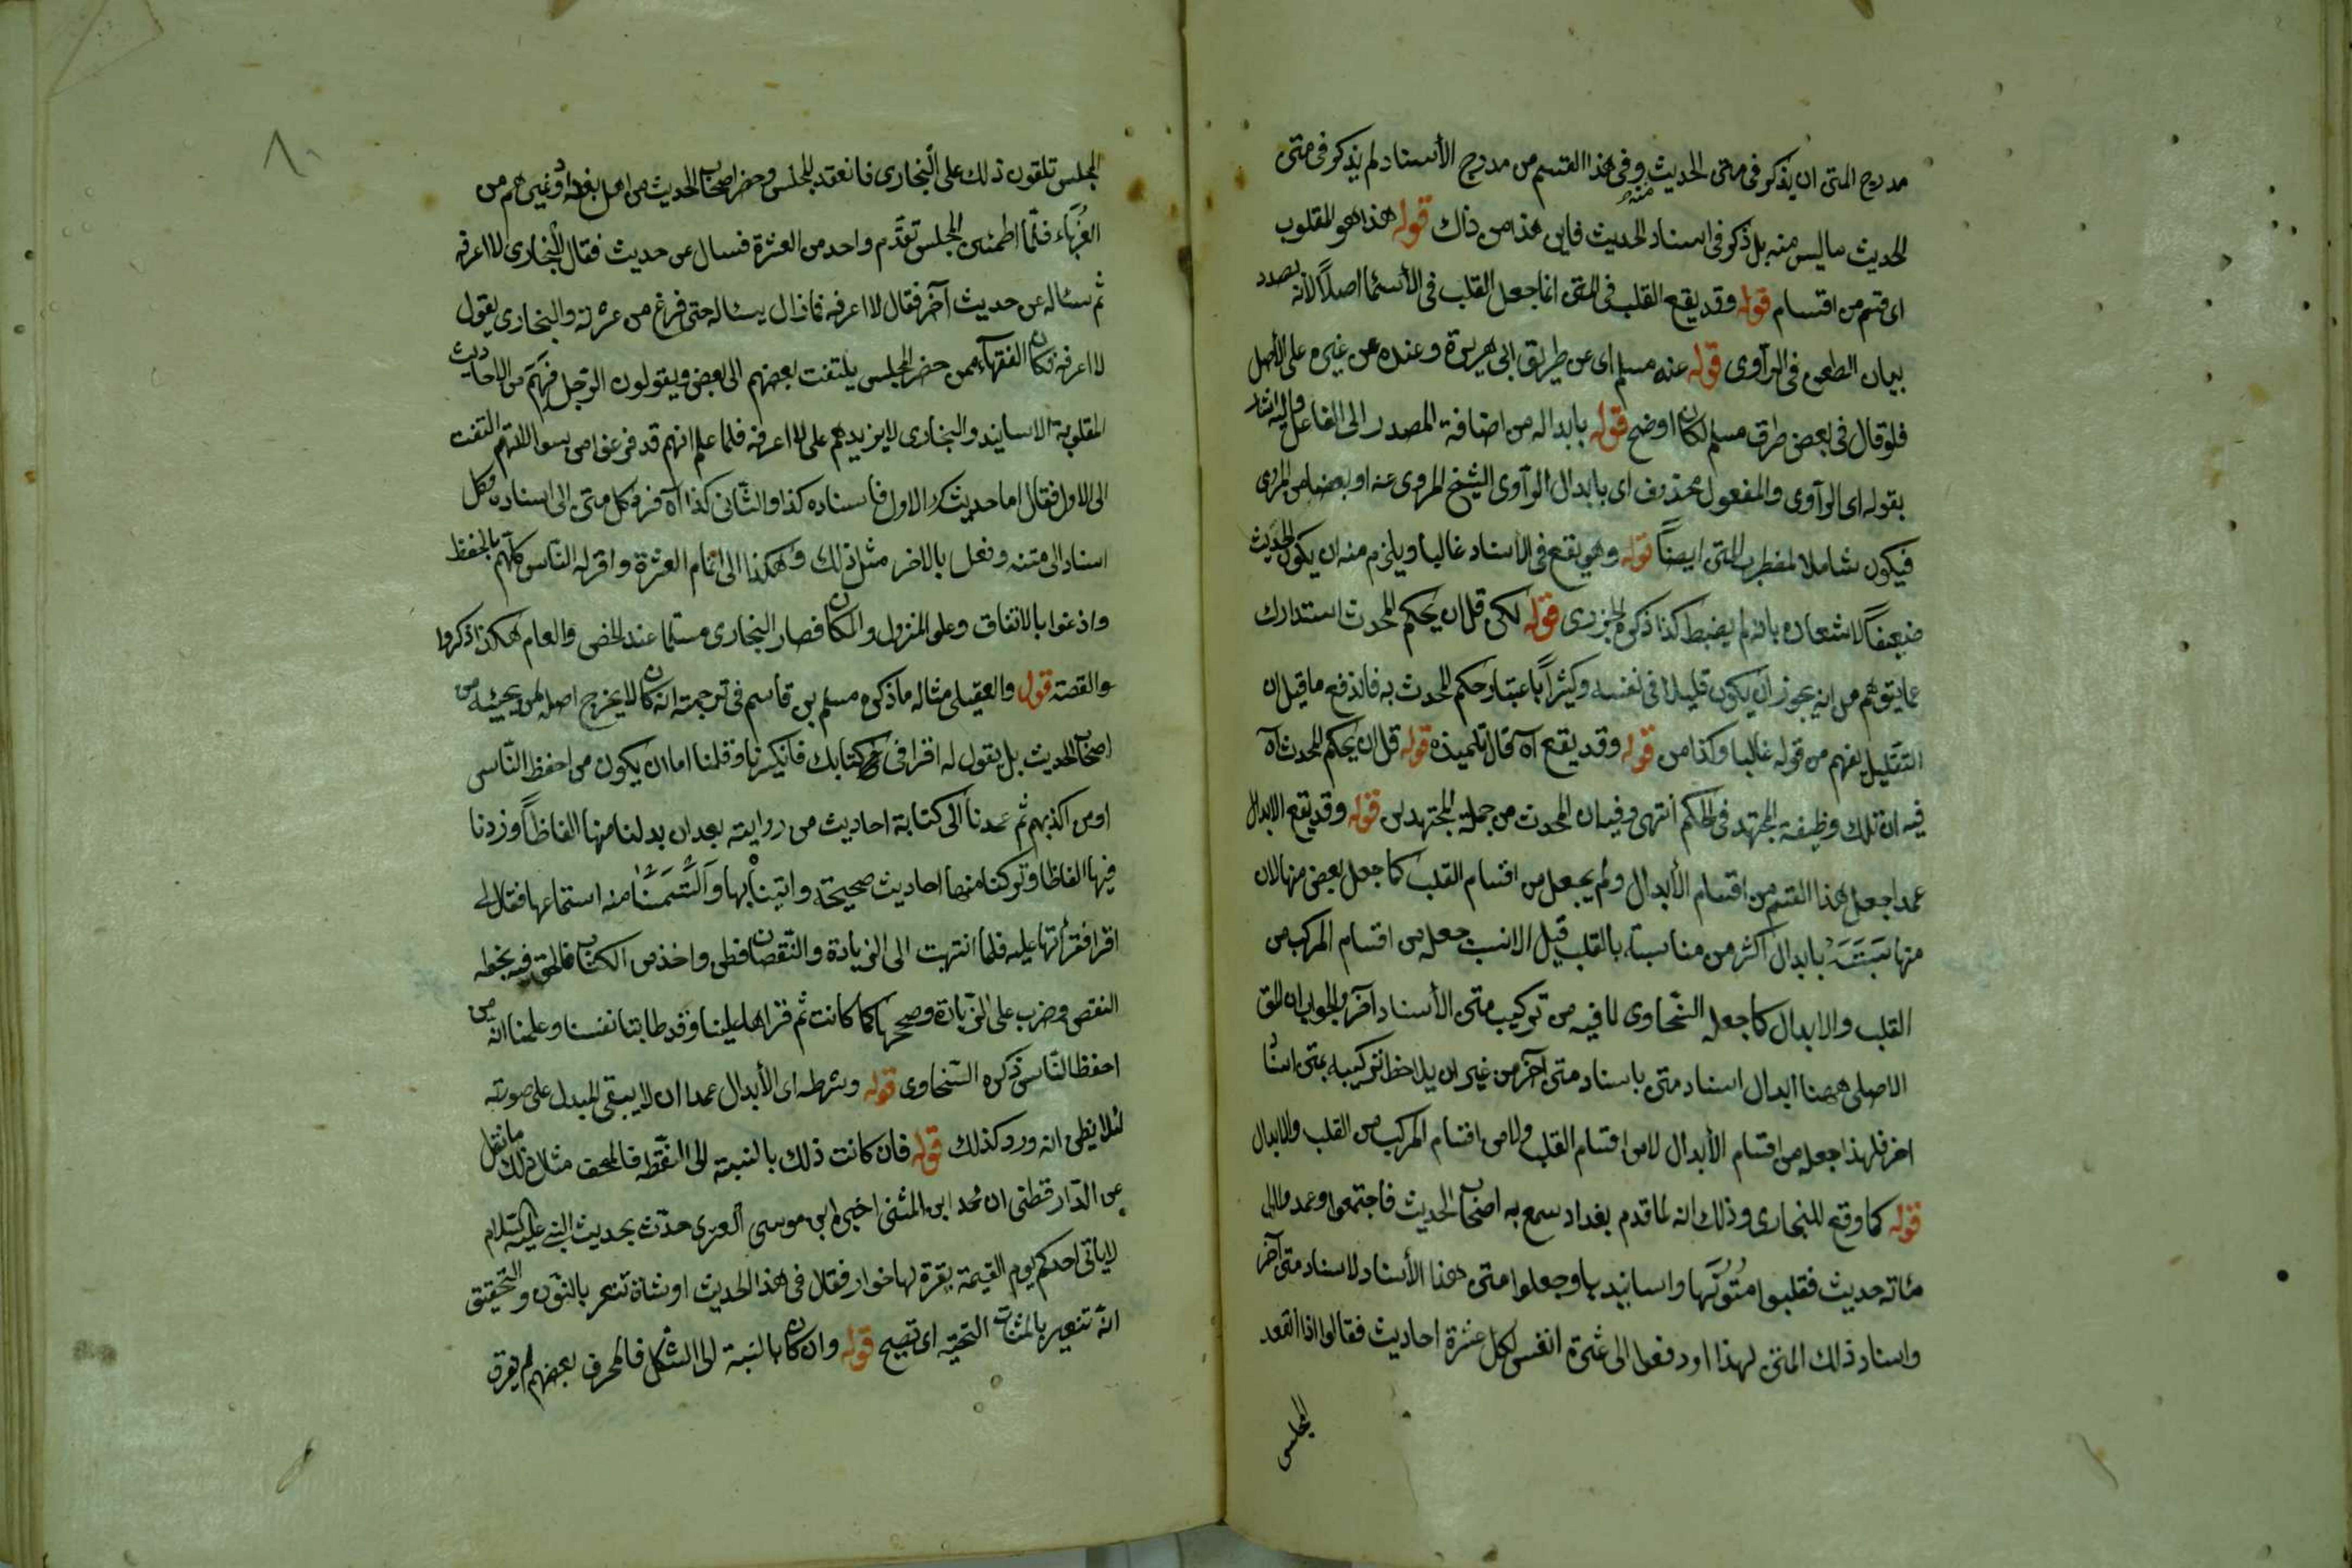 مدرج المتن ان يذكر فى متن الحديث وفى هذا القسم من مدرج الأسناد لم يذكر فى متن
منه
الحديث ماليس منه بل ذكر فى اسناد الحديث فاين هذا من ذاك قوله هذا هو المقلوب
اى قسم من اقسام قوله وقد يقع القلب فى المتن انما جعل القلب فى الأسما اصلاً لانه بصدد
بيان الطعن فى الرآوى قوله عند مسلم اى عن طريق ابى هريرة وعنده عن غيره على الأصل
فلو قال فى بعض طرق مسلم لكان اوضح قوله بابداله من اضافة المصدر الى الفاعل واليه اشار
بقوله اى الرآوى والمفعول محذوف اى بابدال الرآوى الشيخ المروى عنه او بعضا من المروى
فيكون شاملا لمضطرب المتن ايضاً قوله وهو يقع فى الأسناد غالبا ويلزم منه ان يكون الحديث
ضعيفاً لاشعاره بانه لم يضبط كذا ذكره الجزرى قوله لكن قل ان يحكم المحدث استدارك
عما يتوهم من انه يجوز ان يكون قليلا فى نفسه وكثيراً باعتبار حكم المحدث به فاندفع ما قيل ان
التقليل يفهم من قوله غالبا وكذا من قوله وقد يقع آه قال تلميذه قوله قل ان يحكم المحدث آه
فيه ان تلك وظيفة المجتهد فى الحكم انتهى وفيه ان المحدث من جملة المجتهدين قوله وقد يقع الابدال
عمدا جعل هذا القسم من اقسام الأبدال ولم يجعل من اقسام القلب كما جعل بعض منها لان
منها سبته بابدال اكثر من مناسبته بالقلب قيل الانسب جعله من اقسام المركب من
القلب والابدال كما جعله السّخاوى لما فيه من تركيب متن الأسناد آخر والجواب ان المق
الاصلى ههنا ابدال اسناد متن باسناد متن آخر من غير ان يلاحظ تركيبه بمتن اسناد
اخر فلهذا جعله من اقسام الأبدال لا من اقسام القلب ولا من اقسام المركب من القلب والابدال
قوله كما وقع للبخارى وذلك انه لما قدم بغداد سمع به اصحاب الحديث فاجتمعوا وعمدوا الى
مائة حديث فقلبوا مُتُونَها واسانيدها وجعلوا متن هذا الأسناد لاسناد متن آخر
واسناد ذلك المتن لهذا ودفعوا الى عشرة انفس لكل عشرة احاديث فقالوا اذا انعقد
المجلس
٨٠
المجلس تلقون ذلك على البخارى فانعقد المجلس وحضر اصحاب الحديث من اهل بغداد وغيرهم من
الغرباء فلمّا اطمئن المجلس تقدّم واحد من العشرة فسال عن حديث فقال البخارى لا اعرفه
ثم سئاله عن حديث آخر فقال لا اعرفه فما زال يسئاله حتى فرغ من عشرته والبخارى يقول
لا اعرفه فكان الفقهآء ممن حضر المجلس يلتفت بعضهم الى بعض ويقولون الرجل فَهِمَ من الاحاديث
المقلوبة الاسانيد والبخارى لا يزيدهم على لا اعرفه فلما علم انهم قد فرغوا من سوالاتهم التفت
الى الاول فقال اما حديثك الاول فاسناده كذا والثّانى كذا آه فرد كل متن الى اسناده وكل
اسناد الى متنه وفعل بالاخر مثل ذلك وهكذا الى اتمام العشرة واقر له النّاس كلّهم بالحفظ
واذعنوا بالاتفاق وعلو المنزل والمكان فصار البخارى مسلّما عند الخاص والعام هكذا ذكروا
والقصة قوله والعقيلى مثاله ما ذكره مسلم بن قاسم فى ترجمته انه كان لا يخرج اصله لمن يجيئه من
اصحاب الحديث بل يقول له اقرا فى كتابك فانكرنا وقلنا اما ان يكون من احفظ النّاس
او من اكذبهم ثم عمدنا الى كتابة احاديث من روايته بعد ان بدلنا منها الفاظاً وزدنا
فيها الفاظا وتركنا منها احاديث صحيحة واتيناه بها والتمسنا منه استماعها فقال لى
اقرا فقرأتها عليه فلما انتهيت الى الزيادة والنّقصان فطن واخذ من الكتاب فالحق فيه بخطه
النقص وضرب على الزّيادة وصححها كما كانت ثم قراها علينا وقد طابتنا نفسنا وعلمنا انه من
احفظ النّاس ذكره السّخاوى قوله وشرطه اى الأبدال عمدا ان لا يبقى المبدل على صورته
لئلا يظن انه ورد كذلك قوله فان كانت ذلك بالنسبة الى النّقطه فالمصحف مثال ذلك ما نقل
عن الدّارقطنى ان محمد ابن المثنى اخبره ابن موسى العنزى حدّث بحديث النبى عليه السّلام
لا ياتى احدكم يوم القيمة بقرة لها خوار فقال فى هذا الحديث او شاة تنعر بالنّون والتحقيق
انّه تيعر بالمثنات التحتيه اى تصيح قوله وان كان بالنسبة الى الشكل فالمحرف بعضهم لم يفرق